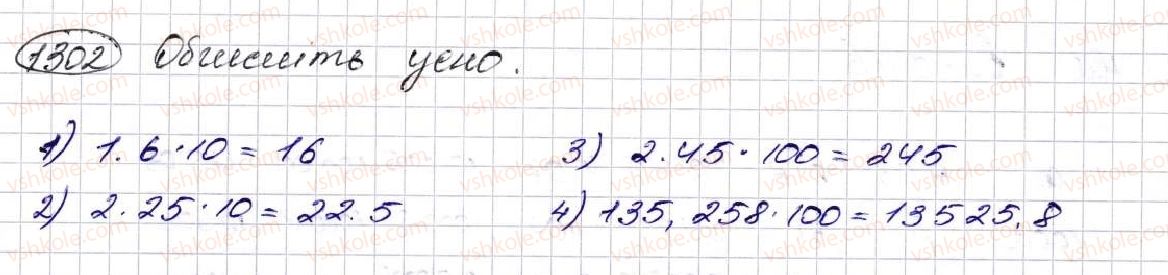 1302 Обчисліть усно.
1) 1.6·10=16
2) 2.25·10=22.5
3) 2.45·100=245
4) 135,258·100=13525,8